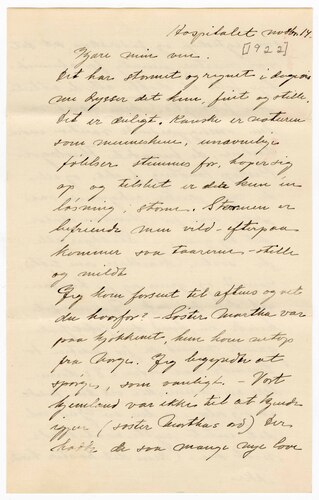 Hospitalet novbr 14.
[1922]
Kjære min ven.
Det har stormet og regnet i dagevis
nu drysser det kun, fint og stille,
det er deiligt. Kanske er naturen
som menneskene, uvenlige
følelser stemmes for, hoper sig
op og tilslut er der kun en
løsning, storm. Stormen er
befriende men vild – efterpaa
kommer saa taarerne – stille
og mildt
Jeg kom forsent til aftens og vet
du hvorfor? – Søster Martha var
paa kjøkkenet, hun kom netop
fra Norge. Jeg begyndte at
spørge, som vanligt. – Vort
hjemland var ikke til at kjende
igjen (søster Marthas ord) Der
hadde de saa mange nye love